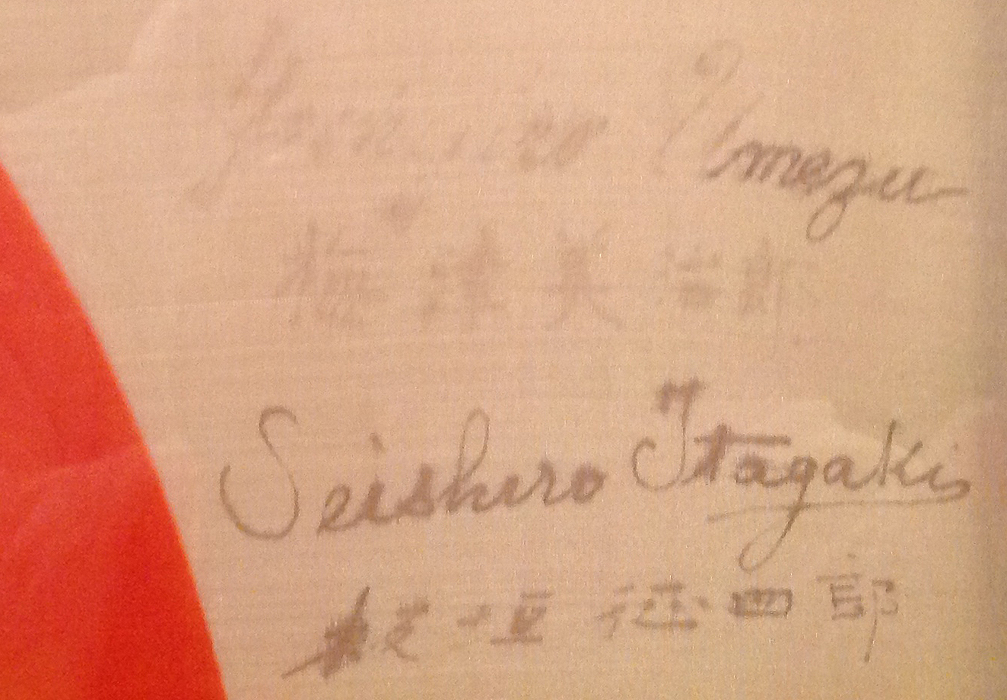 Yoshijiro Umezu
梅津美治郎
Seishiro Itagaki
板垣征四郎